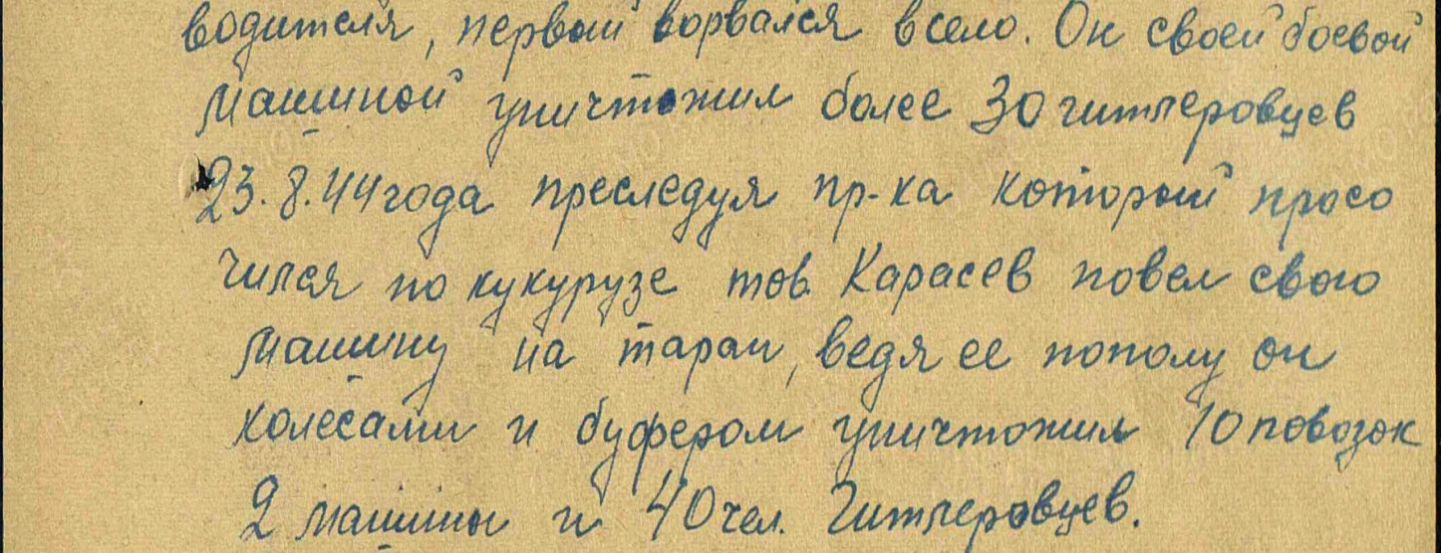 водителя, первый ворвался в село. Он своей боевой
машиной уничтожил более 30 гитлеровцев
23.8.44 года преследуя пр-ка который просо
чился по кукурузе тов. Карасев повел свою
машину на таран, ведя ее по полу он
колесами и буфером уничтожил 10 повозок
2 машины и 40 чел. Гитлеровцев.